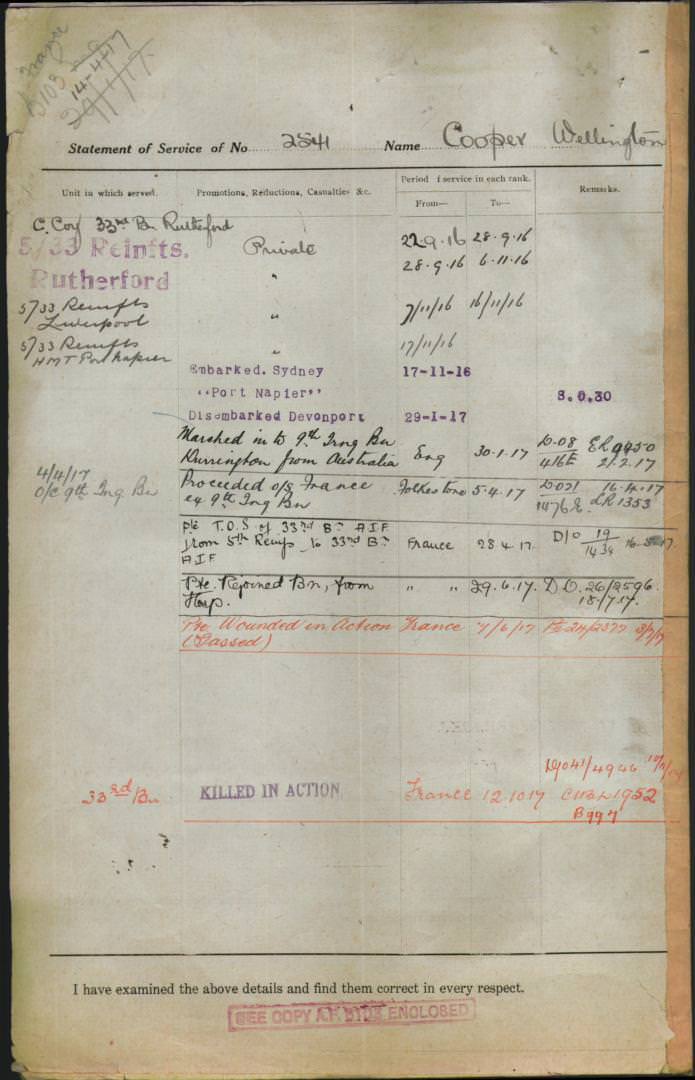 France
B103
14-4-17
29/1/17
Statement of Service of No. 2541 Name Cooper Wellington
Unit in which served. Promotions, Reductions, Casualties &c. Period of service in each rank. From— To— Remarks.
C. Coy 33rd Bn Rutherford 22.9.16 28.9.16
5/33 Reinfts. Private 28.9.16 6.11.16
Rutherford
5/33 Reinfts " 7/11/16 16/11/16
Liverpool
5/33 Reinfts " 17/11/16
HMT Port Napier
Embarked. Sydney 17-11-16
"Port Napier" 8.6.30
Disembarked Devonport 29-1-17
Marched in to 9th Trng Bn
Durrington from Australia Eng 30.1.17 21.2.17
4/4/17 Proceeded o/s France Folkestone 5.4.17 16.4.17
O/C 9th Trng Bn ex 9th Trng Bn LR 1353
Pte T.O.S of 33rd Bn A.I.F
from 5th Reinfs to 33rd Bn France 28.4.17. D/O 19/1434
A.I.F
Pte. Rejoined Bn, from " " 29.6.17. D.O. 26/2596
Hosp. 18/7/17.
Pte Wounded in Action France 7/6/17 24/2377 3/7/17
(Gassed)
DO41/4946
33rd Bn KILLED IN ACTION France 12.10.17 1952
B997
I have examined the above details and find them correct in every respect.
SEE COPY A.F. B103 ENCLOSED